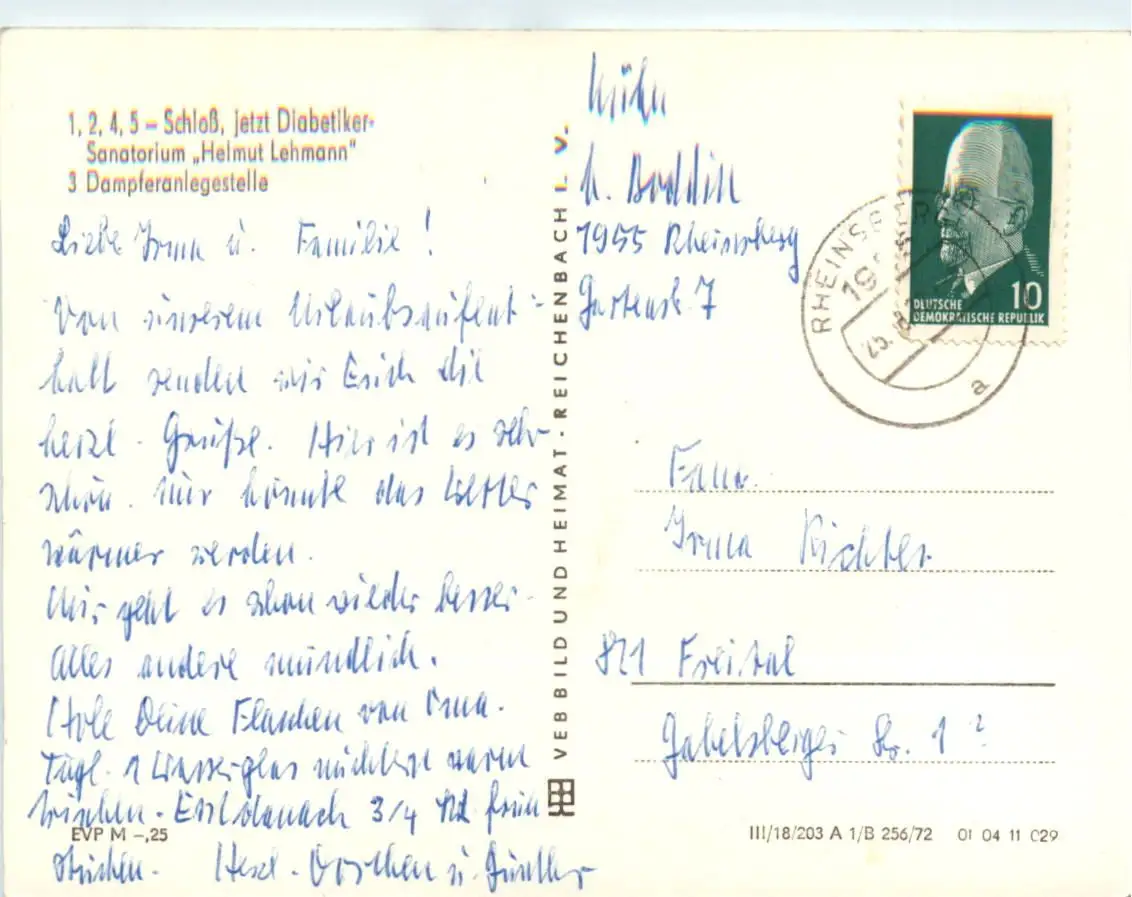 1, 2, 4, 5 – Schloß, jetzt Diabetiker-
Sanatorium „Helmut Lehmann"
3 Dampferanlegestelle
Liebe Irma u. Familie!
Von unserem Urlaubsaufent-
halt senden wir Euch die
herzl. Grüße. Hier ist es sehr
schön. Nur könnte das Wetter
wärmer werden.
Mir geht es schon wieder besser.
Alles andere mündlich.
Hole Deine Flaschen von Oma.
Tägl. 1 Wasserglas nüchtern warm
trinken. Erst danach 3/4 Std. früh
stücken. Herzl. Dorchen u. Günther
EVP M –,25
VEB BILD UND HEIMAT · REICHENBACH I. V.
b. Boddin
1955 Rheinsberg
Gartenstr. 7
DEUTSCHE
DEMOKRATISCHE REPUBLIK
10
RHEINSBERG
19
25.
a
Frau
Irma Richter
821 Freital
Gabelsberger Str. 1?
III/18/203 A 1/B 256/72 01 04 11 029